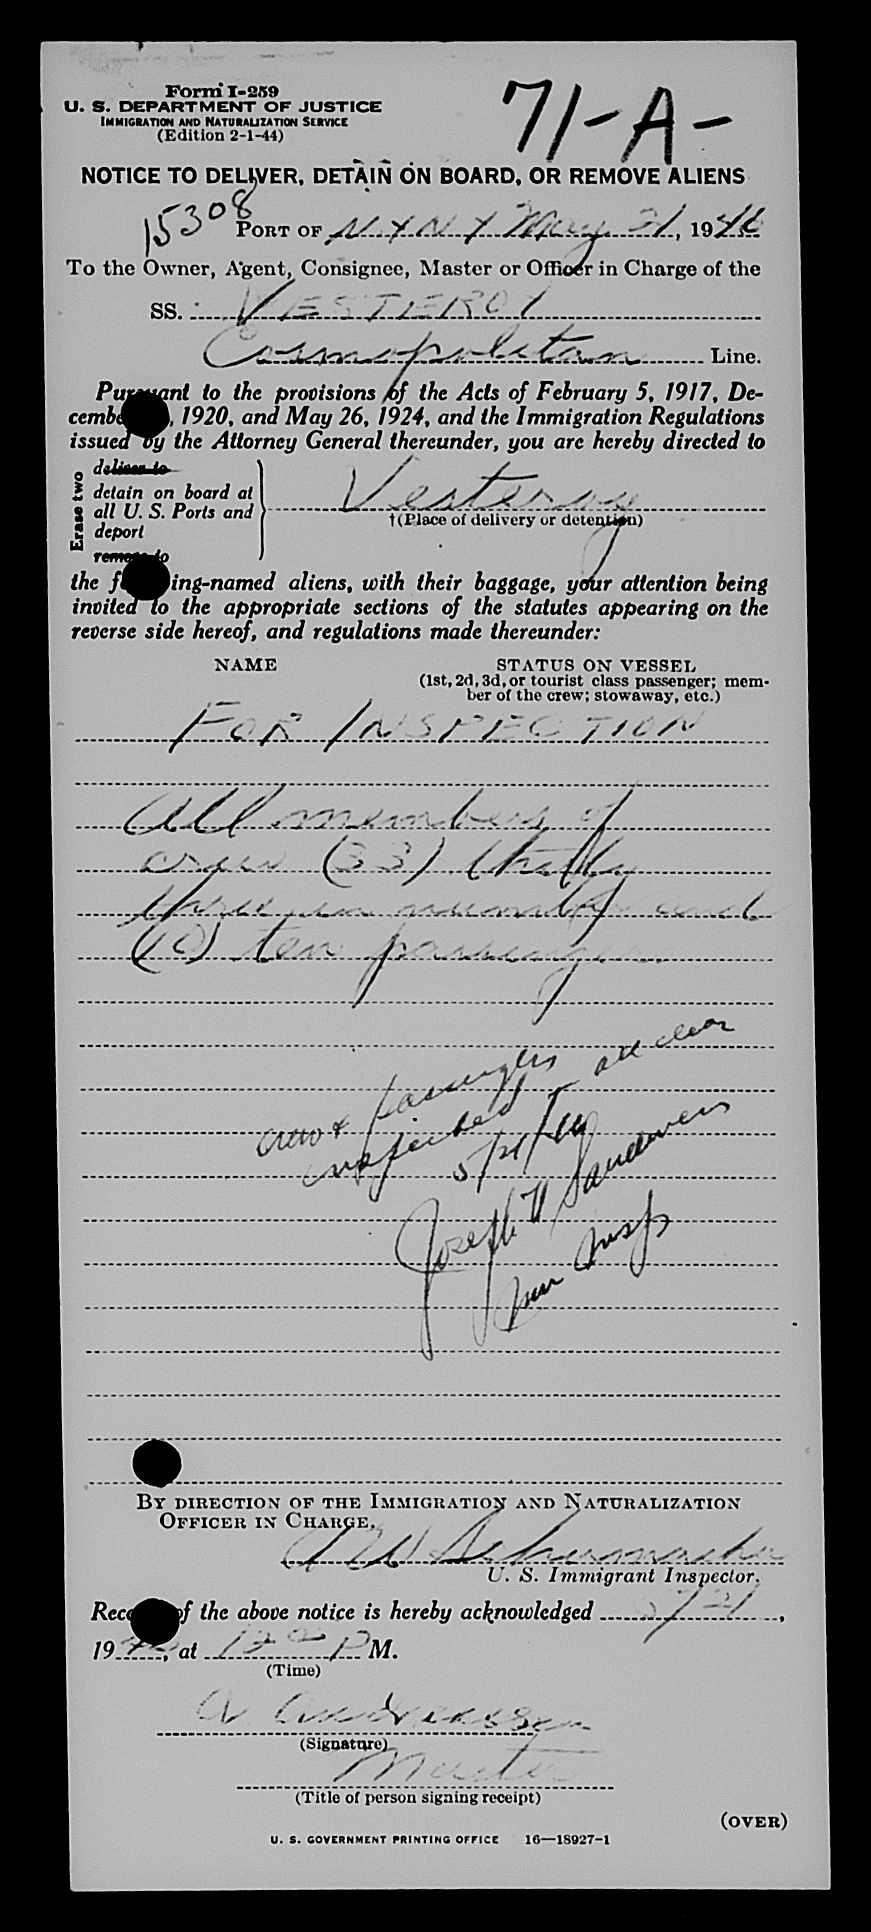 Form I-259
U. S. DEPARTMENT OF JUSTICE
IMMIGRATION AND NATURALIZATION SERVICE
(Edition 2-1-44)
71-A-
NOTICE TO DELIVER, DETAIN ON BOARD, OR REMOVE ALIENS
15308
PORT OF N Y N Y May 21, 1946
To the Owner, Agent, Consignee, Master or Officer in Charge of the
SS. VESTEROY
Cosmopolitan Line.
Pursuant to the provisions of the Acts of February 5, 1917, De-
cember, 1920, and May 26, 1924, and the Immigration Regulations
issued by the Attorney General thereunder, you are hereby directed to
Erase two
deliver to
detain on board at
all U. S. Ports and
deport
remove to
Vesteroy
†(Place of delivery or detention)
the following-named aliens, with their baggage, your attention being
invited to the appropriate sections of the statutes appearing on the
reverse side hereof, and regulations made thereunder:
NAME STATUS ON VESSEL
(1st, 2d, 3d, or tourist class passenger; mem-
ber of the crew; stowaway, etc.)
FOR INSPECTION
All members of
crew (33) thirty
three in number and
(10) ten passengers.
crew & passengers all clear
inspected
5/21/46
Joseph
Imm Insp
BY DIRECTION OF THE IMMIGRATION AND NATURALIZATION
OFFICER IN CHARGE,
A W Schumacher
U. S. Immigrant Inspector.
Receipt of the above notice is hereby acknowledged 5/21,
1946, at 12 P M.
(Time)
A Andreassen
(Signature)
Master
(Title of person signing receipt)
(OVER)
U. S. GOVERNMENT PRINTING OFFICE 16—18927-1